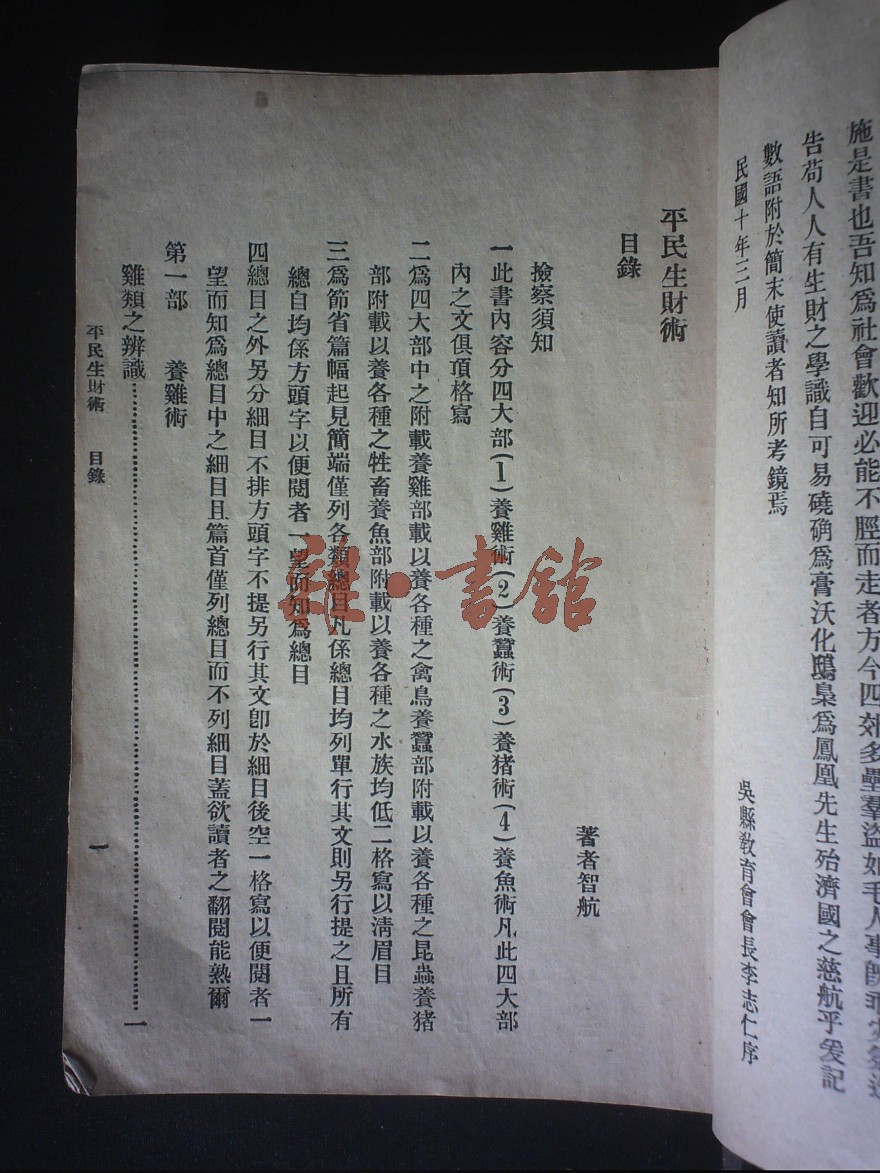 施是書也吾知爲社會歡迎必能不脛而走者方今四郊多壘羣盜如毛人事
告苟人人有生財之學識自可易磽确爲膏沃化鴟梟爲鳳凰先生殆濟國之慈航乎爰記
數語附於簡末使讀者知所考鏡焉
民國十年三月
吳縣敎育會會長李志仁序
平民生財術
目錄
著者智航
撿察須知
一此書內容分四大部(1)養雞術(2)養蠶術(3)養猪術(4)養魚術凡此四大部
內之文俱頂格寫
二爲四大部中之附載養雞部載以養各種之禽鳥養蠶部附載以養各種之昆蟲養猪
部附載以養各種之牲畜養魚部附載以養各種之水族均低二格寫以淸眉目
三爲節省篇幅起見簡端僅列各類總目凡係總目均列單行其文則另行提之且所有
總自均係方頭字以便閱者一望而知爲總目
四總目之外另分細目不排方頭字不提另行其文卽於細目後空一格寫以便閱者一
望而知爲總目中之細目且篇首僅列總目而不列細目蓋欲讀者之翻閱能熟爾
第一部 養雞術
雞類之辨識……………………………………一
平民生財術 目錄 一
雜·書館